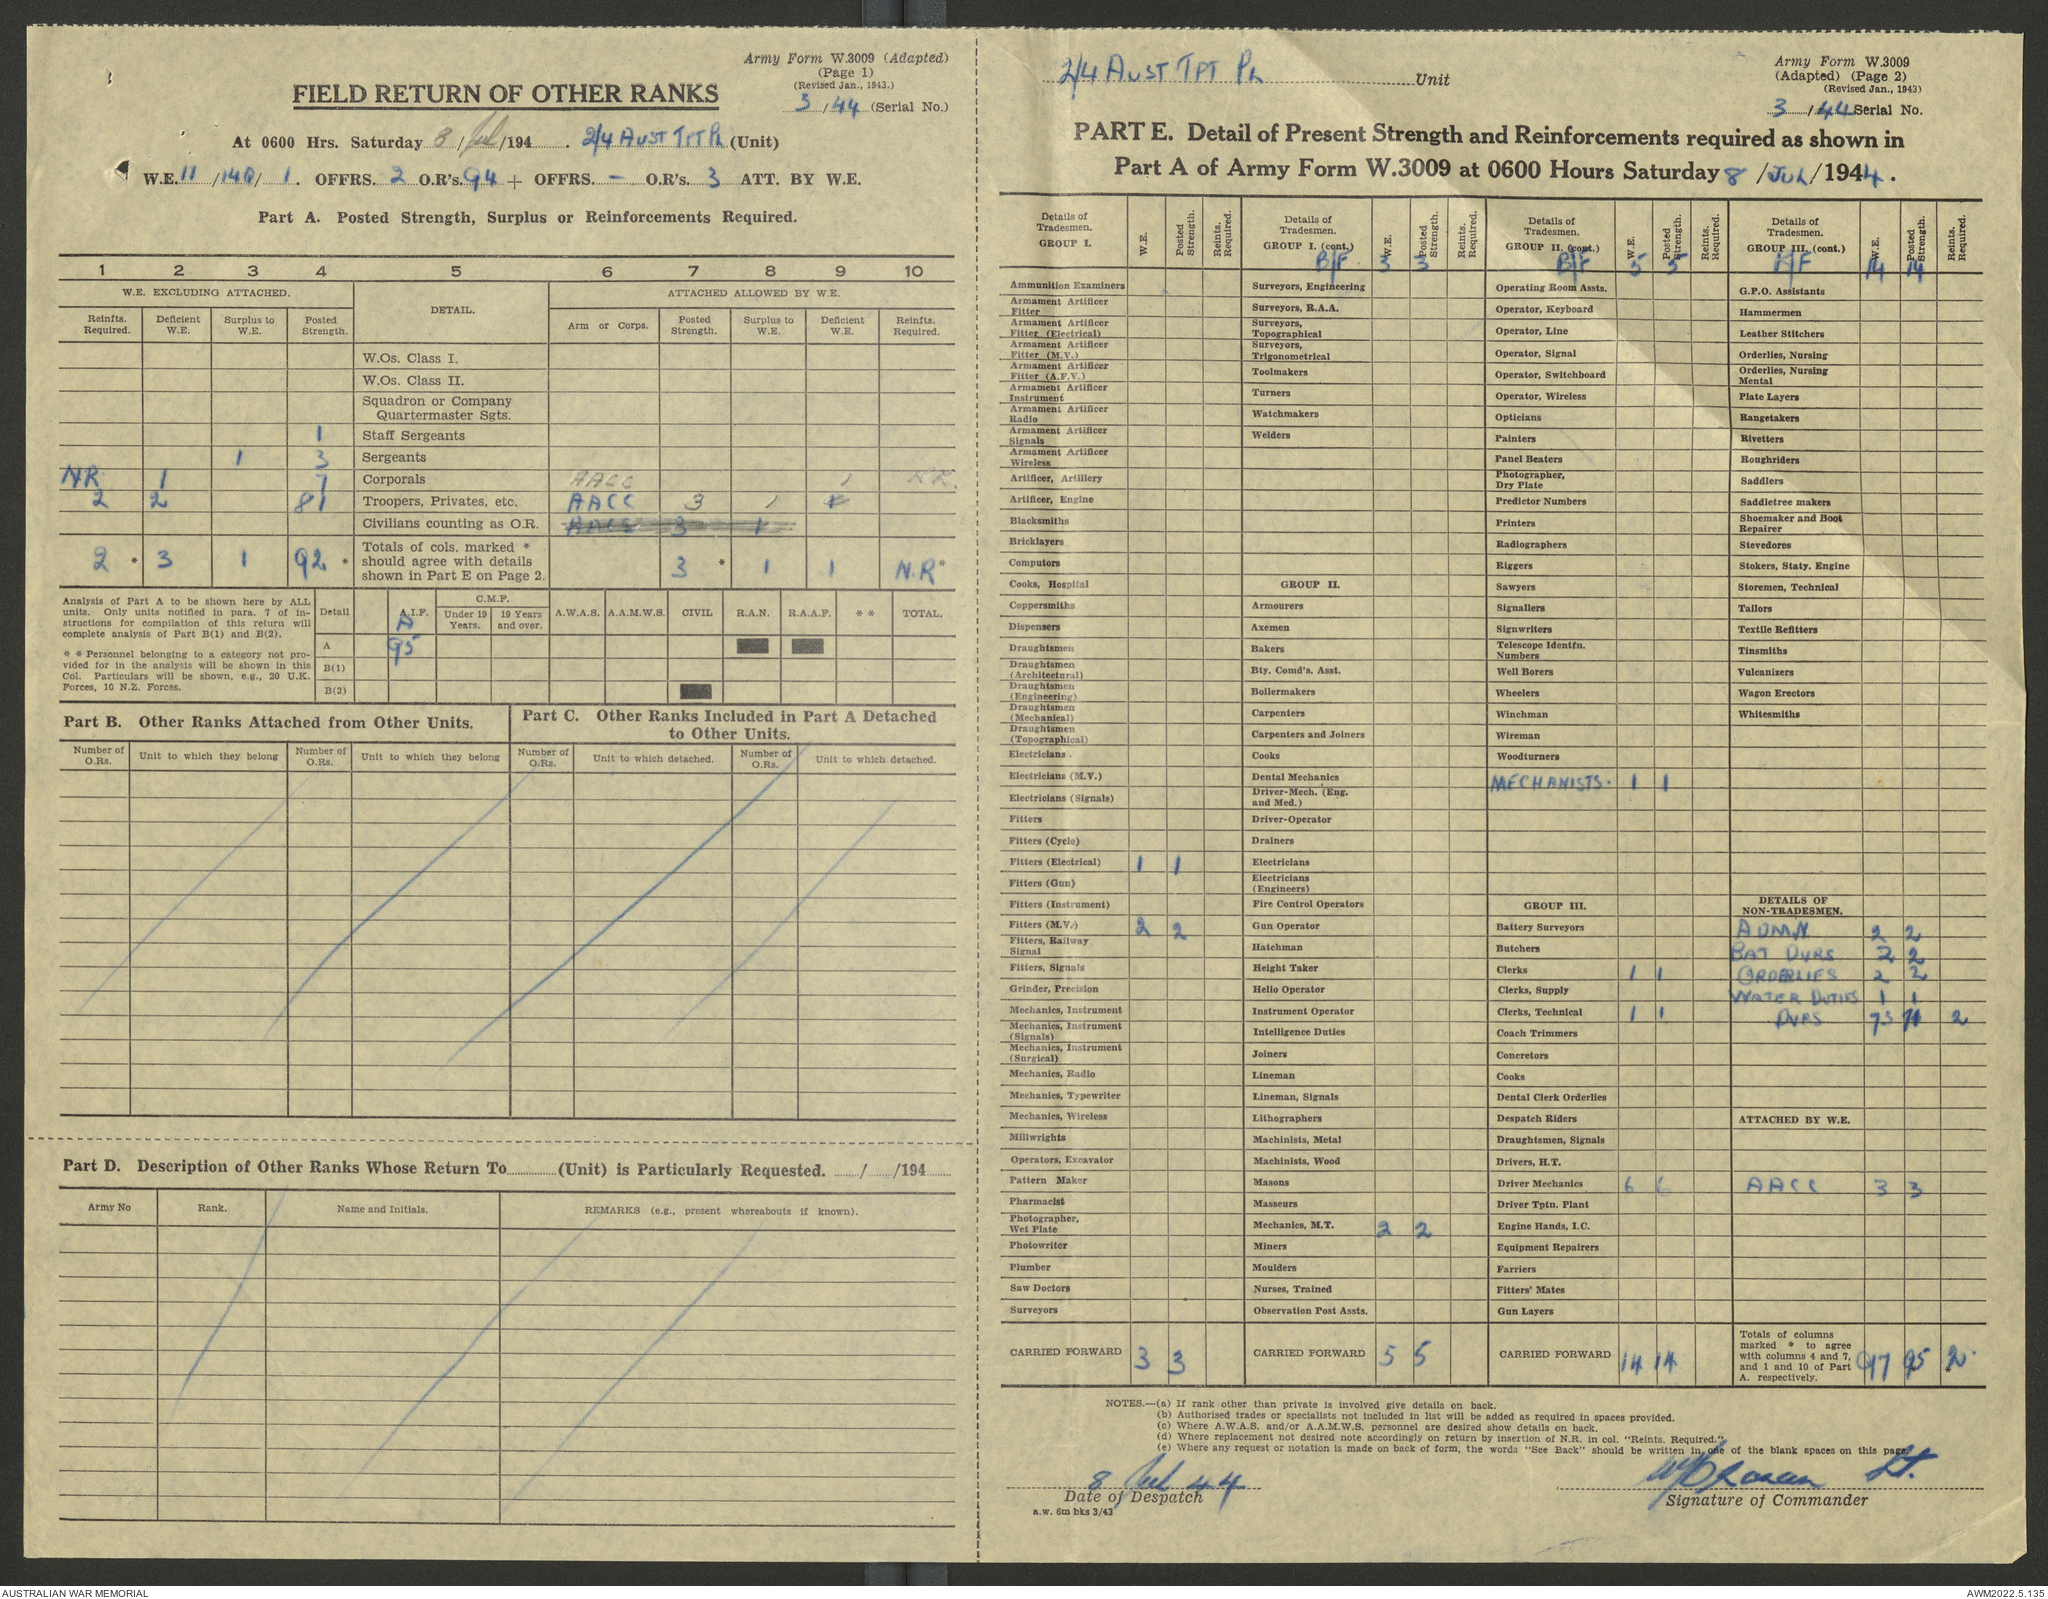 Army Form W.3009 (Adapted)
(Page 1)
(Revised Jan., 1943.)
FIELD RETURN OF OTHER RANKS
3/44 (Serial No.)
At 0600 Hrs. Saturday 8/Jul/194 . 2/4 AUST TPT PL (Unit)
W.E. 11/140/1. OFFRS. 2 O.R's. 94 + OFFRS. - O.R's. 3 ATT. BY W.E.
Part A. Posted Strength, Surplus or Reinforcements Required.
1 2 3 4 5 6 7 8 9 10
W.E. EXCLUDING ATTACHED. DETAIL. ATTACHED ALLOWED BY W.E.
Reinfts. Required. Deficient W.E. Surplus to W.E. Posted Strength. Arm or Corps. Posted Strength. Surplus to W.E. Deficient W.E. Reinfts. Required.
W.Os. Class I.
W.Os. Class II.
Squadron or Company
Quartermaster Sgts.
1 Staff Sergeants
1 3 Sergeants
NR 1 7 Corporals AACC 1 N.R.
2 2 81 Troopers, Privates, etc. AACC 3 1
Civilians counting as O.R. 3 1
2 * 3 1 92 * Totals of cols. marked * should agree with details shown in Part E on Page 2. 3 * 1 1 N.R *
Analysis of Part A to be shown here by ALL
units. Only units notified in para. 7 of in-
structions for compilation of this return will
complete analysis of Part B(1) and B(2).
* * Personnel belonging to a category not pro-
vided for in the analysis will be shown in this
Col. Particulars will be shown, e.g., 20 U.K.
Forces, 10 N.Z. Forces.
Detail A.I.F. C.M.F. Under 19 Years. 19 Years and over. A.W.A.S. A.A.M.W.S. CIVIL R.A.N. R.A.A.F. * * TOTAL.
A 95
B(1)
B(2)
Part B. Other Ranks Attached from Other Units.
Part C. Other Ranks Included in Part A Detached
to Other Units.
Number of O.Rs. Unit to which they belong Number of O.Rs. Unit to which they belong Number of O.Rs. Unit to which detached. Number of O.Rs. Unit to which detached.
Part D. Description of Other Ranks Whose Return To (Unit) is Particularly Requested. / /194
Army No Rank. Name and Initials. REMARKS (e.g., present whereabouts if known).
2/4 AUST TPT PL Unit
Army Form W.3009
(Adapted) (Page 2)
(Revised Jan., 1943)
3/44 Serial No.
PART E. Detail of Present Strength and Reinforcements required as shown in
Part A of Army Form W.3009 at 0600 Hours Saturday 8/JUL/1944.
Details of Tradesmen. GROUP I. W.E. Posted Strength. Reints. Required.
Ammunition Examiners
Armament Artificer Fitter
Armament Artificer Fitter (Electrical)
Armament Artificer Fitter (M.V.)
Armament Artificer Fitter (A.F.V.)
Armament Artificer Instrument
Armament Artificer Radio
Armament Artificer Signals
Armament Artificer Wireless
Artificer, Artillery
Artificer, Engine
Blacksmiths
Bricklayers
Computors
Cooks, Hospital
Coppersmiths
Dispensers
Draughtsmen
Draughtsmen (Architectural)
Draughtsmen (Engineering)
Draughtsmen (Mechanical)
Draughtsmen (Topographical)
Electricians
Electricians (M.V.)
Electricians (Signals)
Fitters
Fitters (Cycle)
Fitters (Electrical) 1 1
Fitters (Gun)
Fitters (Instrument)
Fitters (M.V.) 2 2
Fitters, Railway Signal
Fitters, Signals
Grinder, Precision
Mechanics, Instrument
Mechanics, Instrument (Signals)
Mechanics, Instrument (Surgical)
Mechanics, Radio
Mechanics, Typewriter
Mechanics, Wireless
Millwrights
Operators, Excavator
Pattern Maker
Pharmacist
Photographer, Wet Plate
Photowriter
Plumber
Saw Doctors
Surveyors
CARRIED FORWARD 3 3
Details of Tradesmen. GROUP I. (cont.) W.E. Posted Strength. Reints. Required.
B/F. 3 3
Surveyors, Engineering
Surveyors, R.A.A.
Surveyors, Topographical
Surveyors, Trigonometrical
Toolmakers
Turners
Watchmakers
Welders
GROUP II.
Armourers
Axemen
Bakers
Bty. Comd's. Asst.
Boilermakers
Carpenters
Carpenters and Joiners
Cooks
Dental Mechanics
Driver-Mech. (Eng. and Med.)
Driver-Operator
Drainers
Electricians
Electricians (Engineers)
Fire Control Operators
Gun Operator
Hatchman
Height Taker
Helio Operator
Instrument Operator
Intelligence Duties
Joiners
Lineman
Lineman, Signals
Lithographers
Machinists, Metal
Machinists, Wood
Masons
Masseurs
Mechanics, M.T. 2 2
Miners
Moulders
Nurses, Trained
Observation Post Assts.
CARRIED FORWARD 5 5
Details of Tradesmen. GROUP II. (cont.) W.E. Posted Strength. Reints. Required.
B/F 5 5
Operating Room Assts.
Operator, Keyboard
Operator, Line
Operator, Signal
Operator, Switchboard
Operator, Wireless
Opticians
Painters
Panel Beaters
Photographer, Dry Plate
Predictor Numbers
Printers
Radiographers
Riggers
Sawyers
Signallers
Signwriters
Telescope Identfn. Numbers
Well Borers
Wheelers
Winchman
Wireman
Woodturners
MECHANISTS. 1 1
GROUP III.
Battery Surveyors
Butchers
Clerks 1 1
Clerks, Supply
Clerks, Technical 1 1
Coach Trimmers
Concretors
Cooks
Dental Clerk Orderlies
Despatch Riders
Draughtsmen, Signals
Drivers, H.T.
Driver Mechanics 6 6
Driver Tptn. Plant
Engine Hands, I.C.
Equipment Repairers
Farriers
Fitters' Mates
Gun Layers
CARRIED FORWARD 14 14
Details of Tradesmen. GROUP III. (cont.) W.E. Posted Strength. Reints. Required.
B/F 14 14
G.P.O. Assistants
Hammermen
Leather Stitchers
Orderlies, Nursing
Orderlies, Nursing Mental
Plate Layers
Rangetakers
Rivetters
Roughriders
Saddlers
Saddletree makers
Shoemaker and Boot Repairer
Stevedores
Stokers, Staty. Engine
Storemen, Technical
Tailors
Textile Refitters
Tinsmiths
Vulcanizers
Wagon Erectors
Whitesmiths
DETAILS OF NON-TRADESMEN.
ADMN 2 2
BAT DVRS 2 2
ORDERLIES 2 2
WATER DUTIES 1 1
DVRS 73 71 2
ATTACHED BY W.E.
AACC 3 3
Totals of columns marked * to agree with columns 4 and 7, and 1 and 10 of Part A. respectively. 97 95 2
NOTES.—(a) If rank other than private is involved give details on back.
(b) Authorised trades or specialists not included in list will be added as required in spaces provided.
(c) Where A.W.A.S. and/or A.A.M.W.S. personnel are desired show details on back.
(d) Where replacement not desired note accordingly on return by insertion of N.R. in col. "Reints. Required."
(e) Where any request or notation is made on back of form, the words "See Back" should be written in one of the blank spaces on this page.
8 Jul 44
Lt.
Date of Despatch
Signature of Commander
a.w. 6m bks 3/43
AUSTRALIAN WAR MEMORIAL
AWM2022.5.135